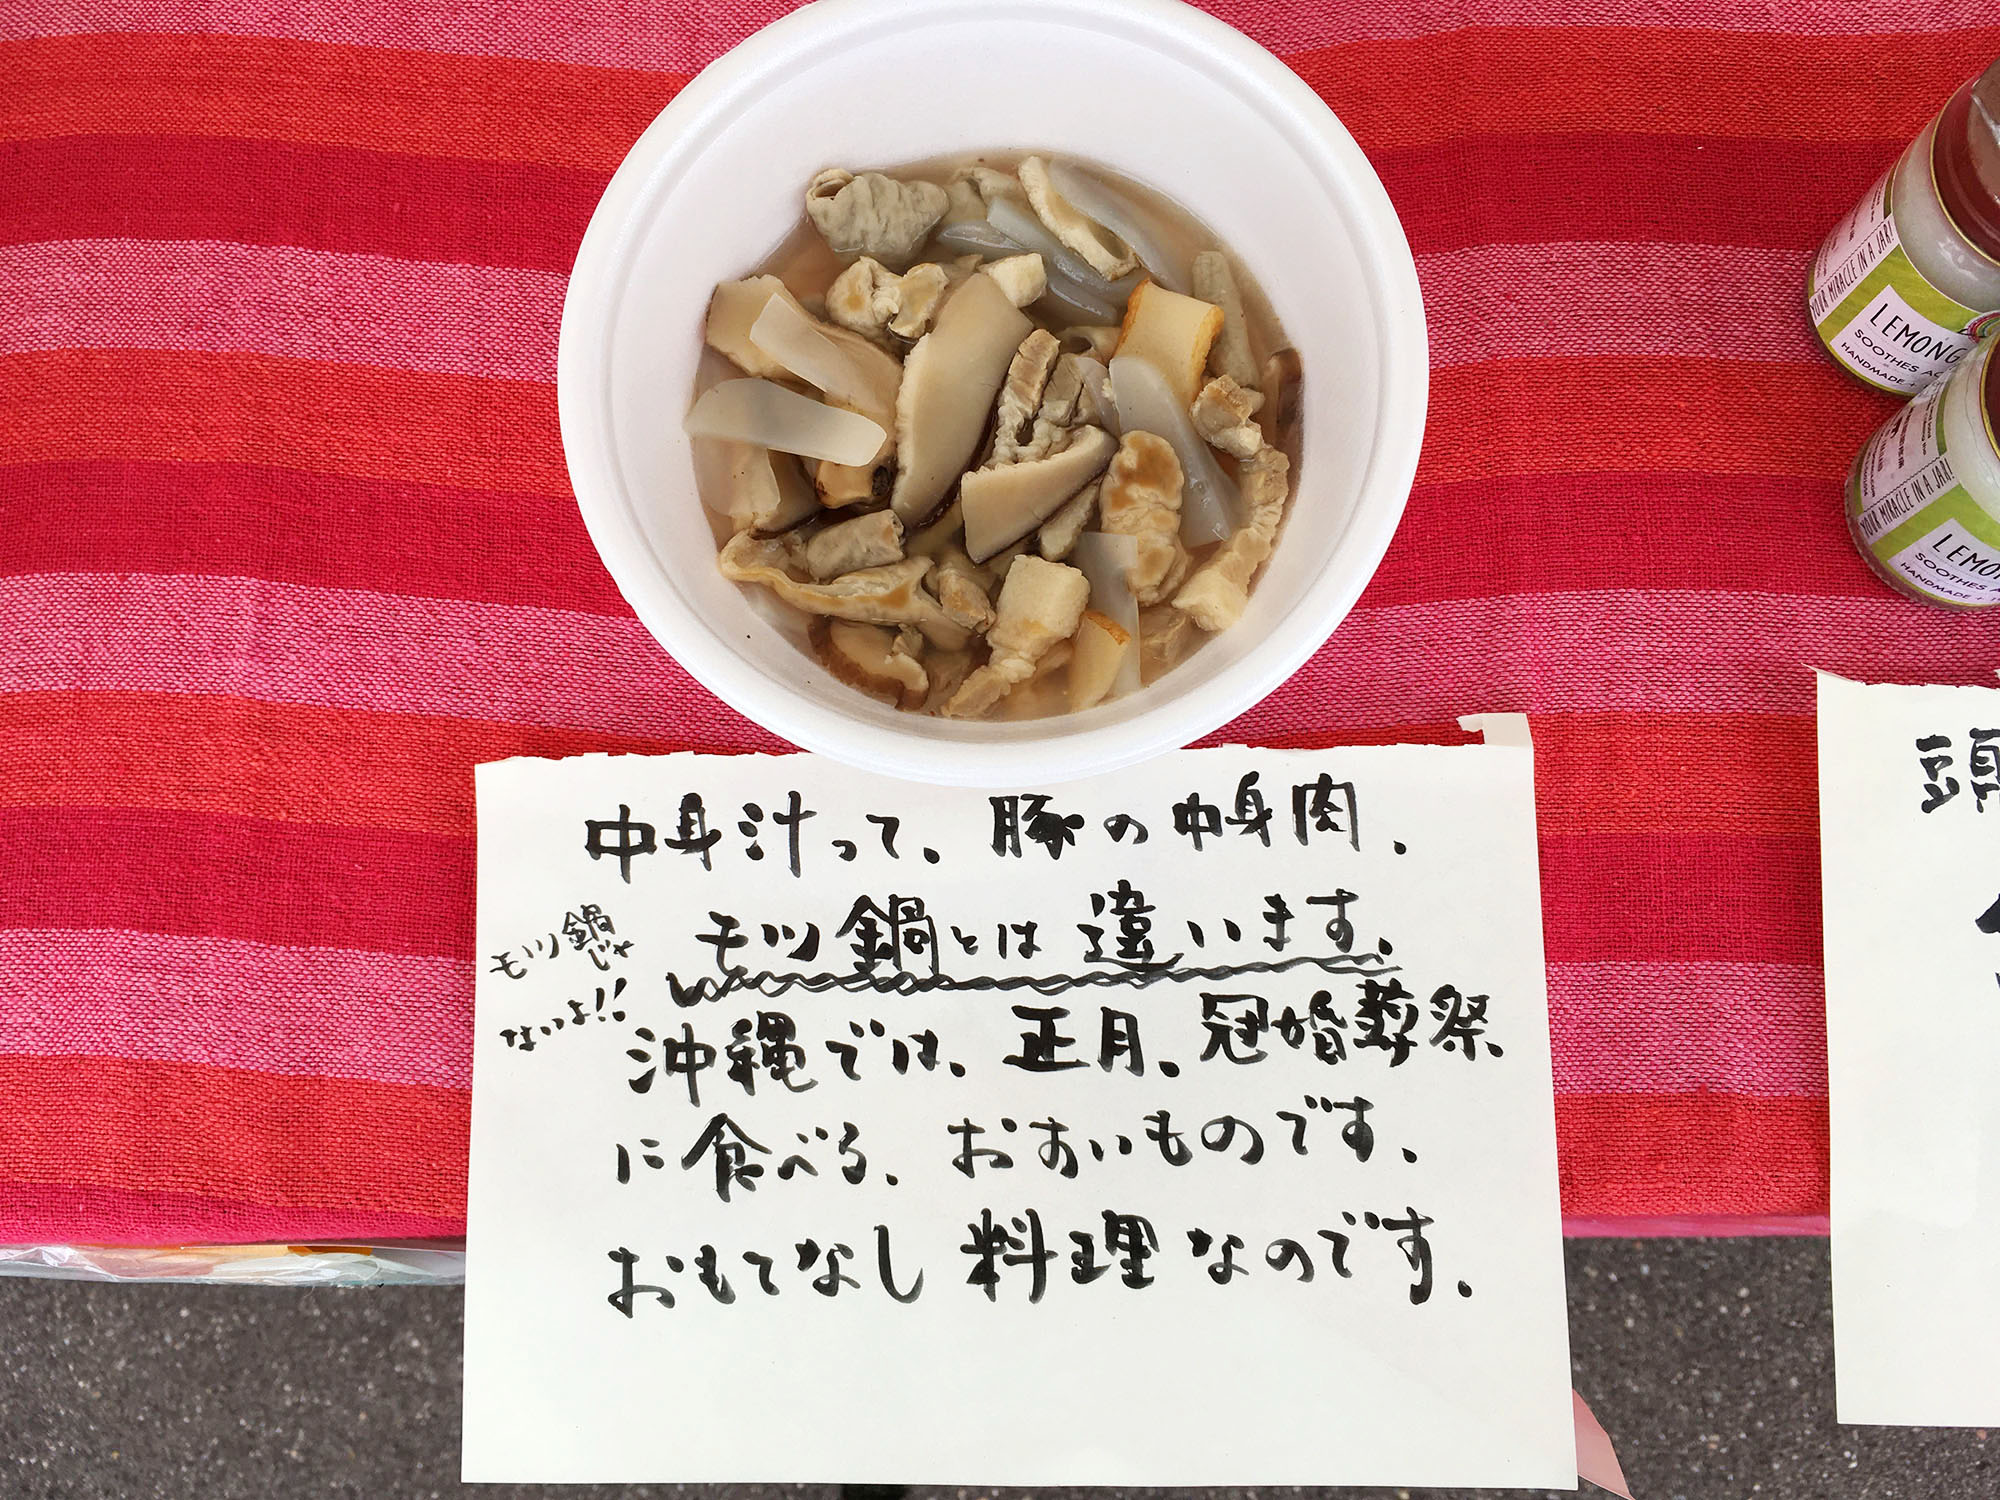 中身汁って、豚の中身肉、
モツ鍋とは違います、
モツ鍋じゃ
ないよ!!
沖縄では、正月、冠婚葬祭
に食べる、おすいものです、
おもてなし料理なのです、
頭
YOUR MIRACLE IN A JAR!
LEMONG
HANDMADE +
YOUR MIRACLE IN A JAR!
HANDMADE +